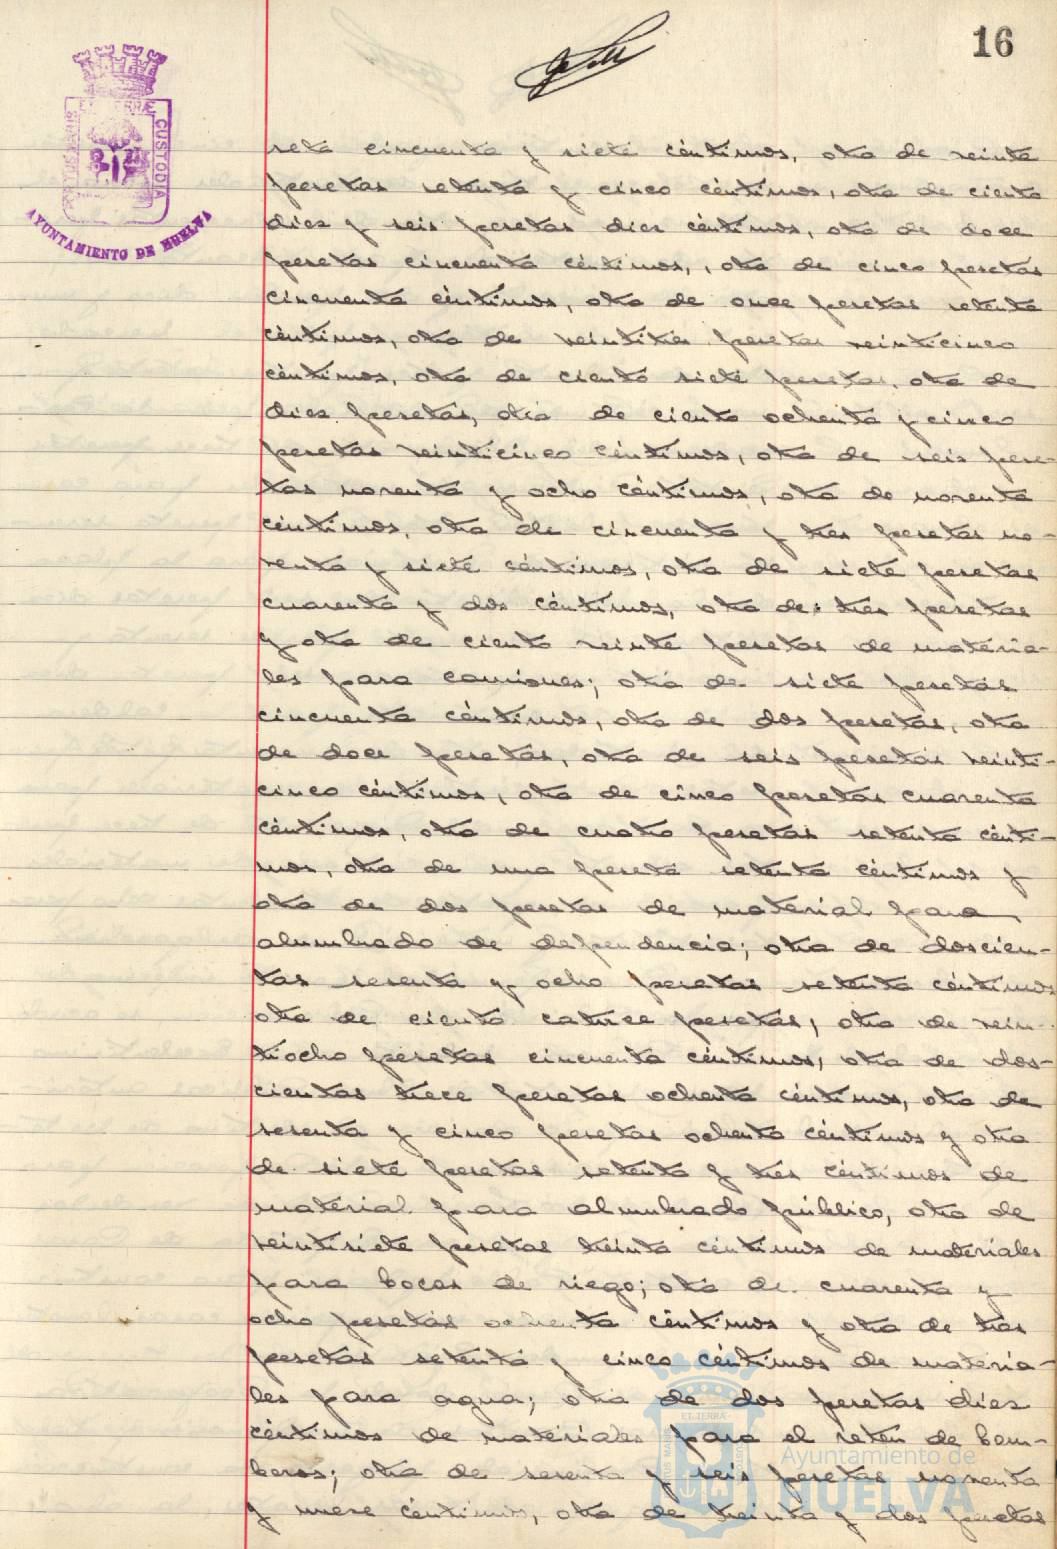 16
PORTUS MARIS ET TERRÆ CUSTODIA
AYUNTAMIENTO DE HUELVA
seta cincuenta y siete céntimos, otra de veinte
pesetas setenta y cinco céntimos, otra de ciento
diez y seis pesetas diez céntimos, otra de doce
pesetas cincuenta céntimos, otra de cinco pesetas
cincuenta céntimos, otra de once pesetas setenta
céntimos, otra de veintitres pesetas veinticinco
céntimos, otra de ciento siete pesetas, otra de
diez pesetas, otra de ciento ochenta y cinco
pesetas veinticinco céntimos, otra de seis pese-
tas noventa y ocho céntimos, otra de noventa
céntimos, otra de cincuenta y tres pesetas no-
venta y siete céntimos, otra de siete pesetas
cuarenta y dos céntimos, otra de tres pesetas
y otra de ciento veinte pesetas de materia-
les para camiones; otra de siete pesetas
cincuenta céntimos, otra de dos pesetas, otra
de doce pesetas, otra de seis pesetas veinti-
cinco céntimos, otra de cinco pesetas cuarenta
céntimos, otra de cuatro pesetas setenta cénti-
mos, otra de una peseta setenta céntimos y
otra de dos pesetas de material para
alumbrado de dependencia; otra de doscien-
tas sesenta y ocho pesetas setenta céntimos
otra de ciento catorce pesetas, otra de vein-
tiocho pesetas cincuenta céntimos, otra de dos-
cientas trece pesetas ochenta céntimos, otra de
sesenta y cinco pesetas ochenta céntimos y otra
de siete pesetas setenta y tres céntimos de
material para alumbrado público, otra de
veintisiete pesetas treinta céntimos de materiales
para bocas de riego; otra de cuarenta y
ocho pesetas ochenta céntimos y otra de tres
pesetas setenta y cinco céntimos de materia-
les para agua; otra de dos pesetas diez
céntimos de materiales para el reten de bom-
beros; otra de sesenta y seis pesetas noventa
y nueve céntimos, otra de treinta y dos pesetas
Ayuntamiento de
HUELVA